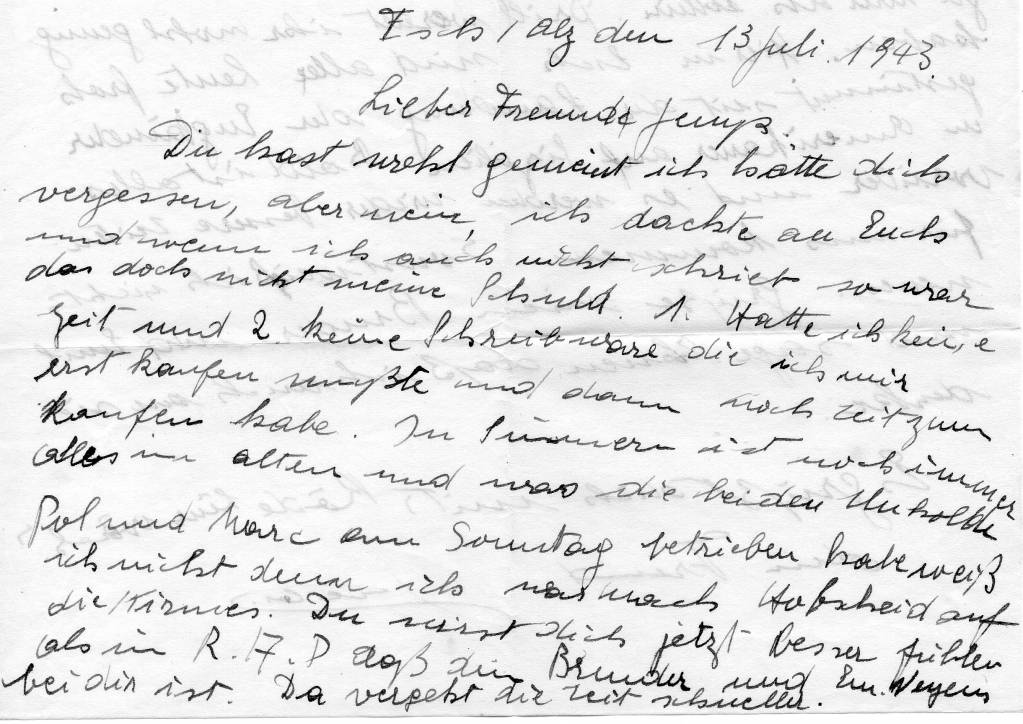 Esch/Alz den 13 Juli. 1943.
Lieber Freund Jemp.
Du hast wohl gemeint ich hätte dich
vergessen, aber nein, ich dachte an Euch
und wenn ich auch nicht schrieb so war
das doch nicht meine Schuld. 1. Hatte ich kein, e
Zeit und 2. keine Schreibware die ich mir
erst kaufen mußte und dann noch Zeit zum
kaufen habe. In Simmern ist noch immer
alles im alten und was die beiden Unholde
Pol und Marc am Sonntag betrieben habe weiß
ich nicht denn ich war nach Hobscheid auf
die Kirmes. Du wirst dich jetzt besser fühlen
als im R.A.D daß dein Bruder und Em. Weyens
bei dir ist. Da vergeht die Zeit schneller.